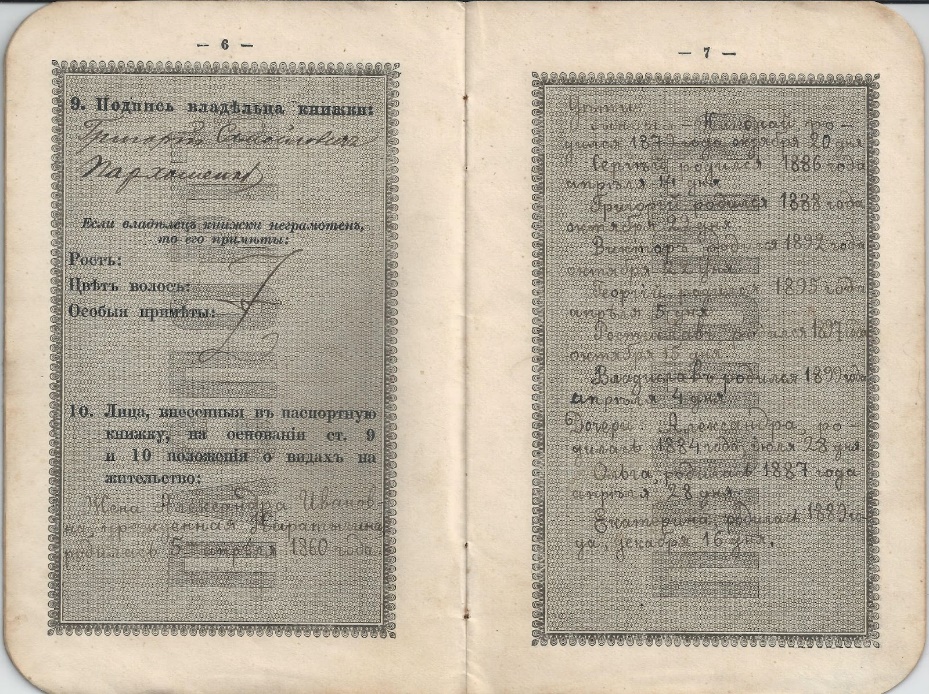 — 6 —
9. Подпись владѣльца книжки:
Григорій Самойловичъ
Пархоменко
Если владѣлецъ книжки неграмотенъ,
то его примѣты:
Ростъ:
Цвѣтъ волосъ:
Особыя примѣты:
10. Лица, внесенныя въ паспортную
книжку, на основаніи ст. 9
и 10 положенія о видахъ на
жительство:
Жена Александра Иванов
на урожденная
родилась 5 апрѣля 1860 года.
— 7 —
Дѣти:
Сыновья — Николай ро-
дился 1879 года октября 20 дня
Сергѣй родился 1886 года
апрѣля дня.
Григорій родился 1888 года
октября дня.
Викторъ родился 1892 года
октября 22 дня.
Георгій родился 1895 года
апрѣля 5 дня
Ростиславъ родился 1897 го
октября 15 дня.
Владиславъ родился 1899 года
апрѣля 4 дня.
Дочери: Александра, ро-
дилась 1884 года, іюля 28 дня.
Ольга, родилась 1887 года
апрѣля 28 дня.
Екатерина, родилась го-
да, декабря 16 дня.